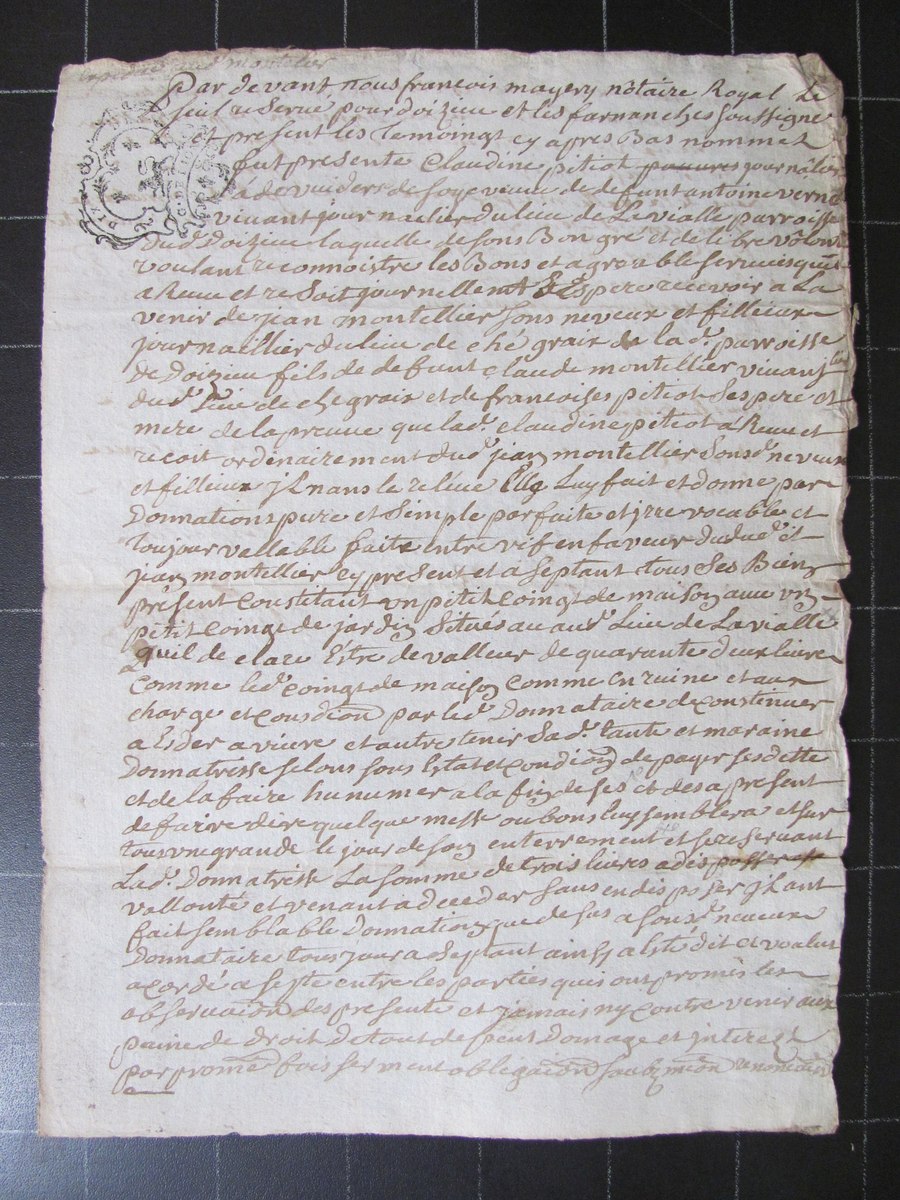 montelier
Par devant nous francois mayery nôtaire Royal Le
seul reservé pour doizieu et les farnanches soussigne
et present les temoingt cy apres Bas nommet
fut presente Claudine pitiot pauures journâliere
a devuiders de soye veuue de defunt antoine verne
vivant journaelier du lieu de Levialle parroisse
dud. Doizieu laquelle de sons Bon gré et de libre vôlonte
voulant reconnoistre les Bons et agreable services quils
a Receu et resoit journellemt & Espere recevoir a La
venir de jean montellier sons neveux et fillieux
journaillier du lieu de ché graix de la d. parroisse
de Doizieu fils de defunt claude montellier vivant
dud. Lieu de chegraix et de francoises pitiot ses pere et
mere de la preuve que lad. claudine pitiot a Receu et
recoit ordenairement dud. jean montellier sonsd. neveux
et fillieux jl nans le releve Elle Luy fait et donne par
Donnations pure et simple parfaite et jrrevocable et
toujour vallable faite entre vif en faveur dudud. et
jean montellier cy present et aseptant tous ses Biens
présent constitant un pitit coingt de maison avec un
pitit coingt de jardin situés au aud. Lieu de La vialle
quil declare Estre de valleur de quarante deux livre
comme led. coingt de maison comme en ruine et aux
charge et condiôn par led. Donnataire de continuer
a Eider a vivre et autretenir sad. tante et maraine
Donnatrisse selons sons Estat et condiôn de payer ses dette
et de la faire hunumer a la fin de ses et des a present
de faire dire quelque messe ou bons luy semblera et sur
tous une grande le jour de son enterrement et se reservant
Lad. Donnatrisse La somme de trois livres a disposser
vallonté et venant a deceder sans en disposer jl ant
fait semblable Donnation que de sus a sousd. neveux
Donnataire tousjour aseptant ainsy a esté dit et voulut
acordé asepte entre les parties qui ont promis les
observaion des presente et jamais ny contre venir aux
paine de droit de tout depent domage et jnterest
par prome fois serment obligaiôn soubmiôn renonciaôn